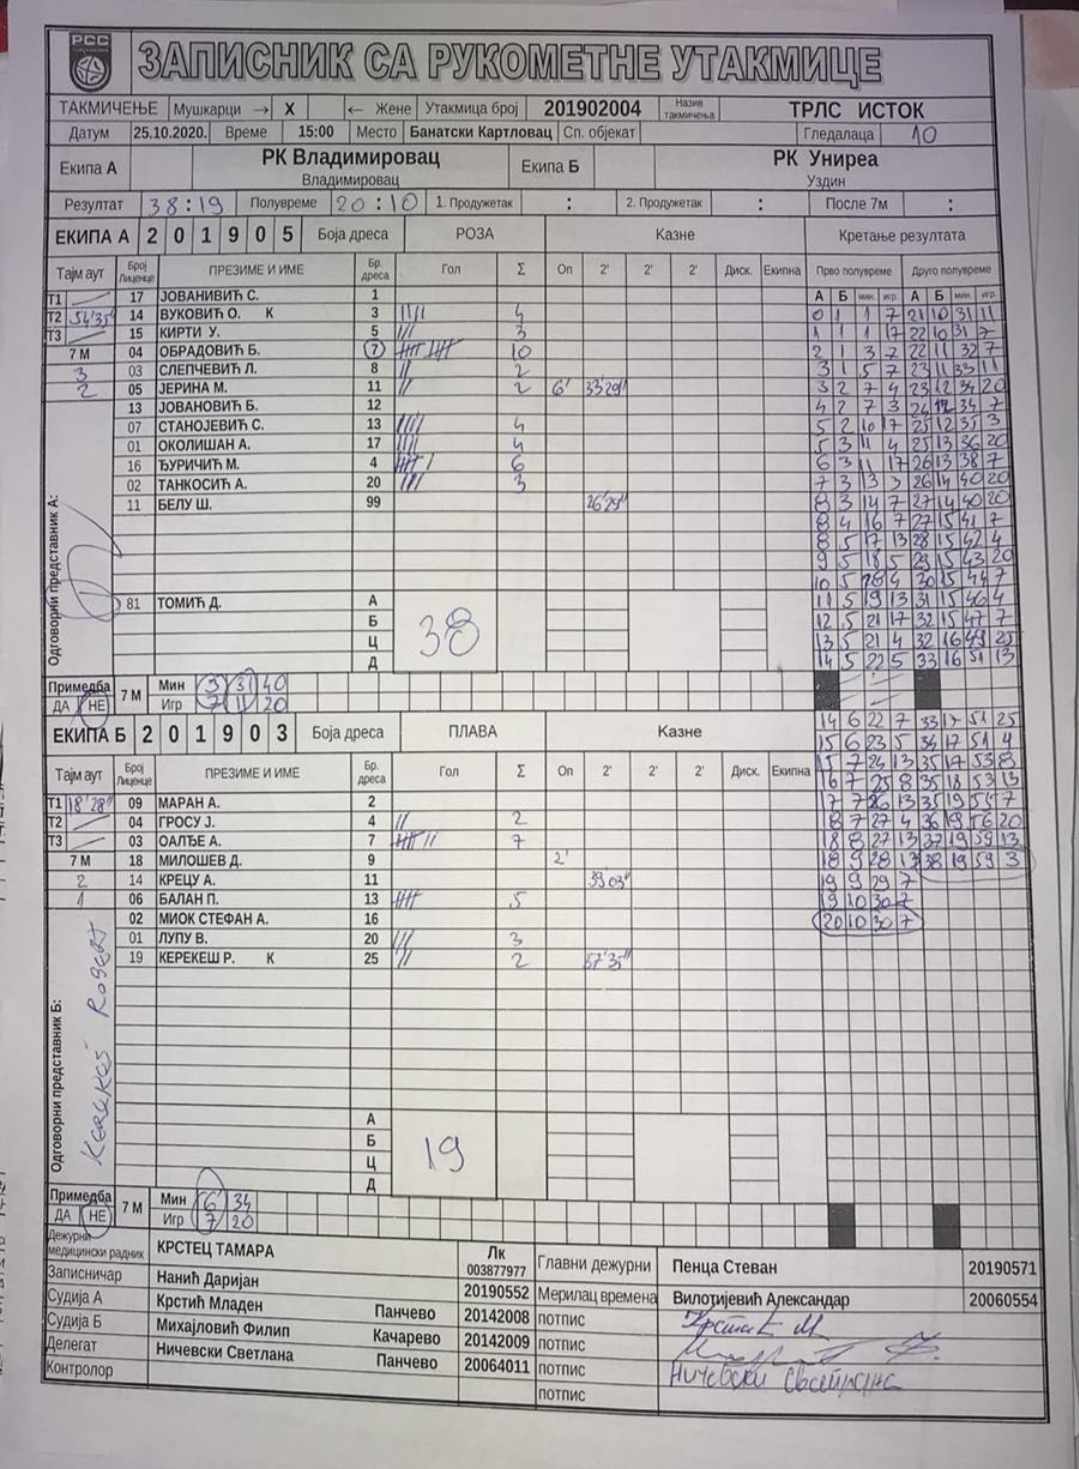 РСС
ЗАПИСНИК СА РУКОМЕТНЕ УТАКМИЦЕ
ТАКМИЧЕЊЕ Мушкарци → X ← Жене Утакмица број 201902004 Назив такмичења ТРЛС ИСТОК
Датум 25.10.2020. Време 15:00 Место Банатски Картловац Сп. објекат Гледалаца 10
Екипа А РК Владимировац Владимировац Екипа Б РК Униреа Уздин
Резултат 38:19 Полувреме 20:10 1. Продужетак : 2. Продужетак : После 7м :
ЕКИПА А 2 0 1 9 0 5 Боја дреса РОЗА Казне Кретање резултата
Тајм аут Број Лиценце ПРЕЗИМЕ И ИМЕ Бр. дреса Гол Σ Оп 2' 2' 2' Диск. Екипна Прво полувреме Друго полувреме
А Б мин. игр. А Б мин. игр.
Т1 17 ЈОВАНИВИЋ С. 1
Т2 54'35" 14 ВУКОВИЋ О. К 3 4
Т3 15 КИРТИ У. 5 3
7 М 04 ОБРАДОВИЋ Б. 7 10
3 03 СЛЕПЧЕВИЋ Л. 8 2
2 05 ЈЕРИНА М. 11 2 6' 33'29"
13 ЈОВАНОВИЋ Б. 12
07 СТАНОЈЕВИЋ С. 13 4
01 ОКОЛИШАН А. 17 4
16 ЂУРИЧИЋ М. 4 6
02 ТАНКОСИЋ А. 20 3
11 БЕЛУ Ш. 99 26'29"
81 ТОМИЋ Д. А
Б
Ц
Д
38
Одговорни представник А:
0 1 1 7 21 10 31 11
1 1 1 17 22 10 31 7
2 1 3 7 22 11 32 7
3 1 5 7 23 11 33 11
3 2 7 4 23 12 34 20
4 2 7 3 24 12 34 7
5 2 10 17 25 12 35 3
5 3 11 4 25 13 36 20
6 3 11 17 26 13 38 7
7 3 13 3 26 14 40 20
8 3 14 7 27 14 40 20
8 4 16 7 27 15 41 7
8 5 17 13 28 15 42 4
9 5 18 5 29 15 43 20
10 5 4 30 15 44 7
11 5 19 13 31 15 46 4
12 5 21 17 32 15 47 7
13 5 21 4 32 16 49 25
14 5 22 5 33 16 51 13
Примедба ДА НЕ 7 М Мин 3 31 40
Игр 7 11 20
14 6 22 7 33 17 51 25
15 6 23 5 34 17 51 4
15 7 24 13 35 17 53 8
16 7 25 8 35 18 53 13
17 7 26 13 35 19 55 7
18 7 27 4 36 19 56 20
18 8 27 13 37 19 59 13
18 9 28 13 38 19 59 3
19 9 29 7
19 10 30 7
20 10 30 7
ЕКИПА Б 2 0 1 9 0 3 Боја дреса ПЛАВА Казне
Тајм аут Број Лиценце ПРЕЗИМЕ И ИМЕ Бр. дреса Гол Σ Оп 2' 2' 2' Диск. Екипна
Т1 18'28" 09 МАРАН А. 2
Т2 04 ГРОСУ Ј. 4 2
Т3 03 ОАЛЂЕ А. 7 7
7 М 18 МИЛОШЕВ Д. 9 2'
2 14 КРЕЦУ А. 11 39'03"
1 06 БАЛАН П. 13 5
02 МИОК СТЕФАН А. 16
01 ЛУПУ В. 20 3
19 КЕРЕКЕШ Р. К 25 2 57'35"
А
Б
Ц
Д
19
Одговорни представник Б: KEREKEŠ ROBERT
Примедба ДА НЕ 7 М Мин 6 34
Игр 7 20
Дежурни медицински радник КРСТЕЦ ТАМАРА Лк 003877977 Главни дежурни Пенца Стеван 20190571
Записничар Нанић Даријан 20190552 Мерилац времена Вилотијевић Александар 20060554
Судија А Крстић Младен Панчево 20142008 потпис
Судија Б Михајловић Филип Качарево 20142009 потпис
Делегат Ничевски Светлана Панчево 20064011 потпис Ничевски Светлана
Контролор потпис